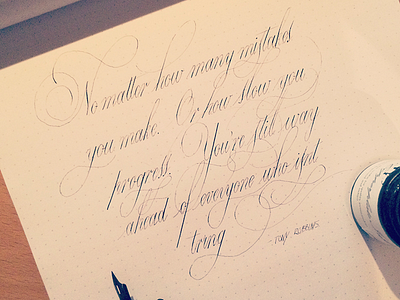 No matter how many mistakes
you make. Or how slow you
progress. You're still way
ahead of everyone who isn't
tring
- TONY ROBBINS